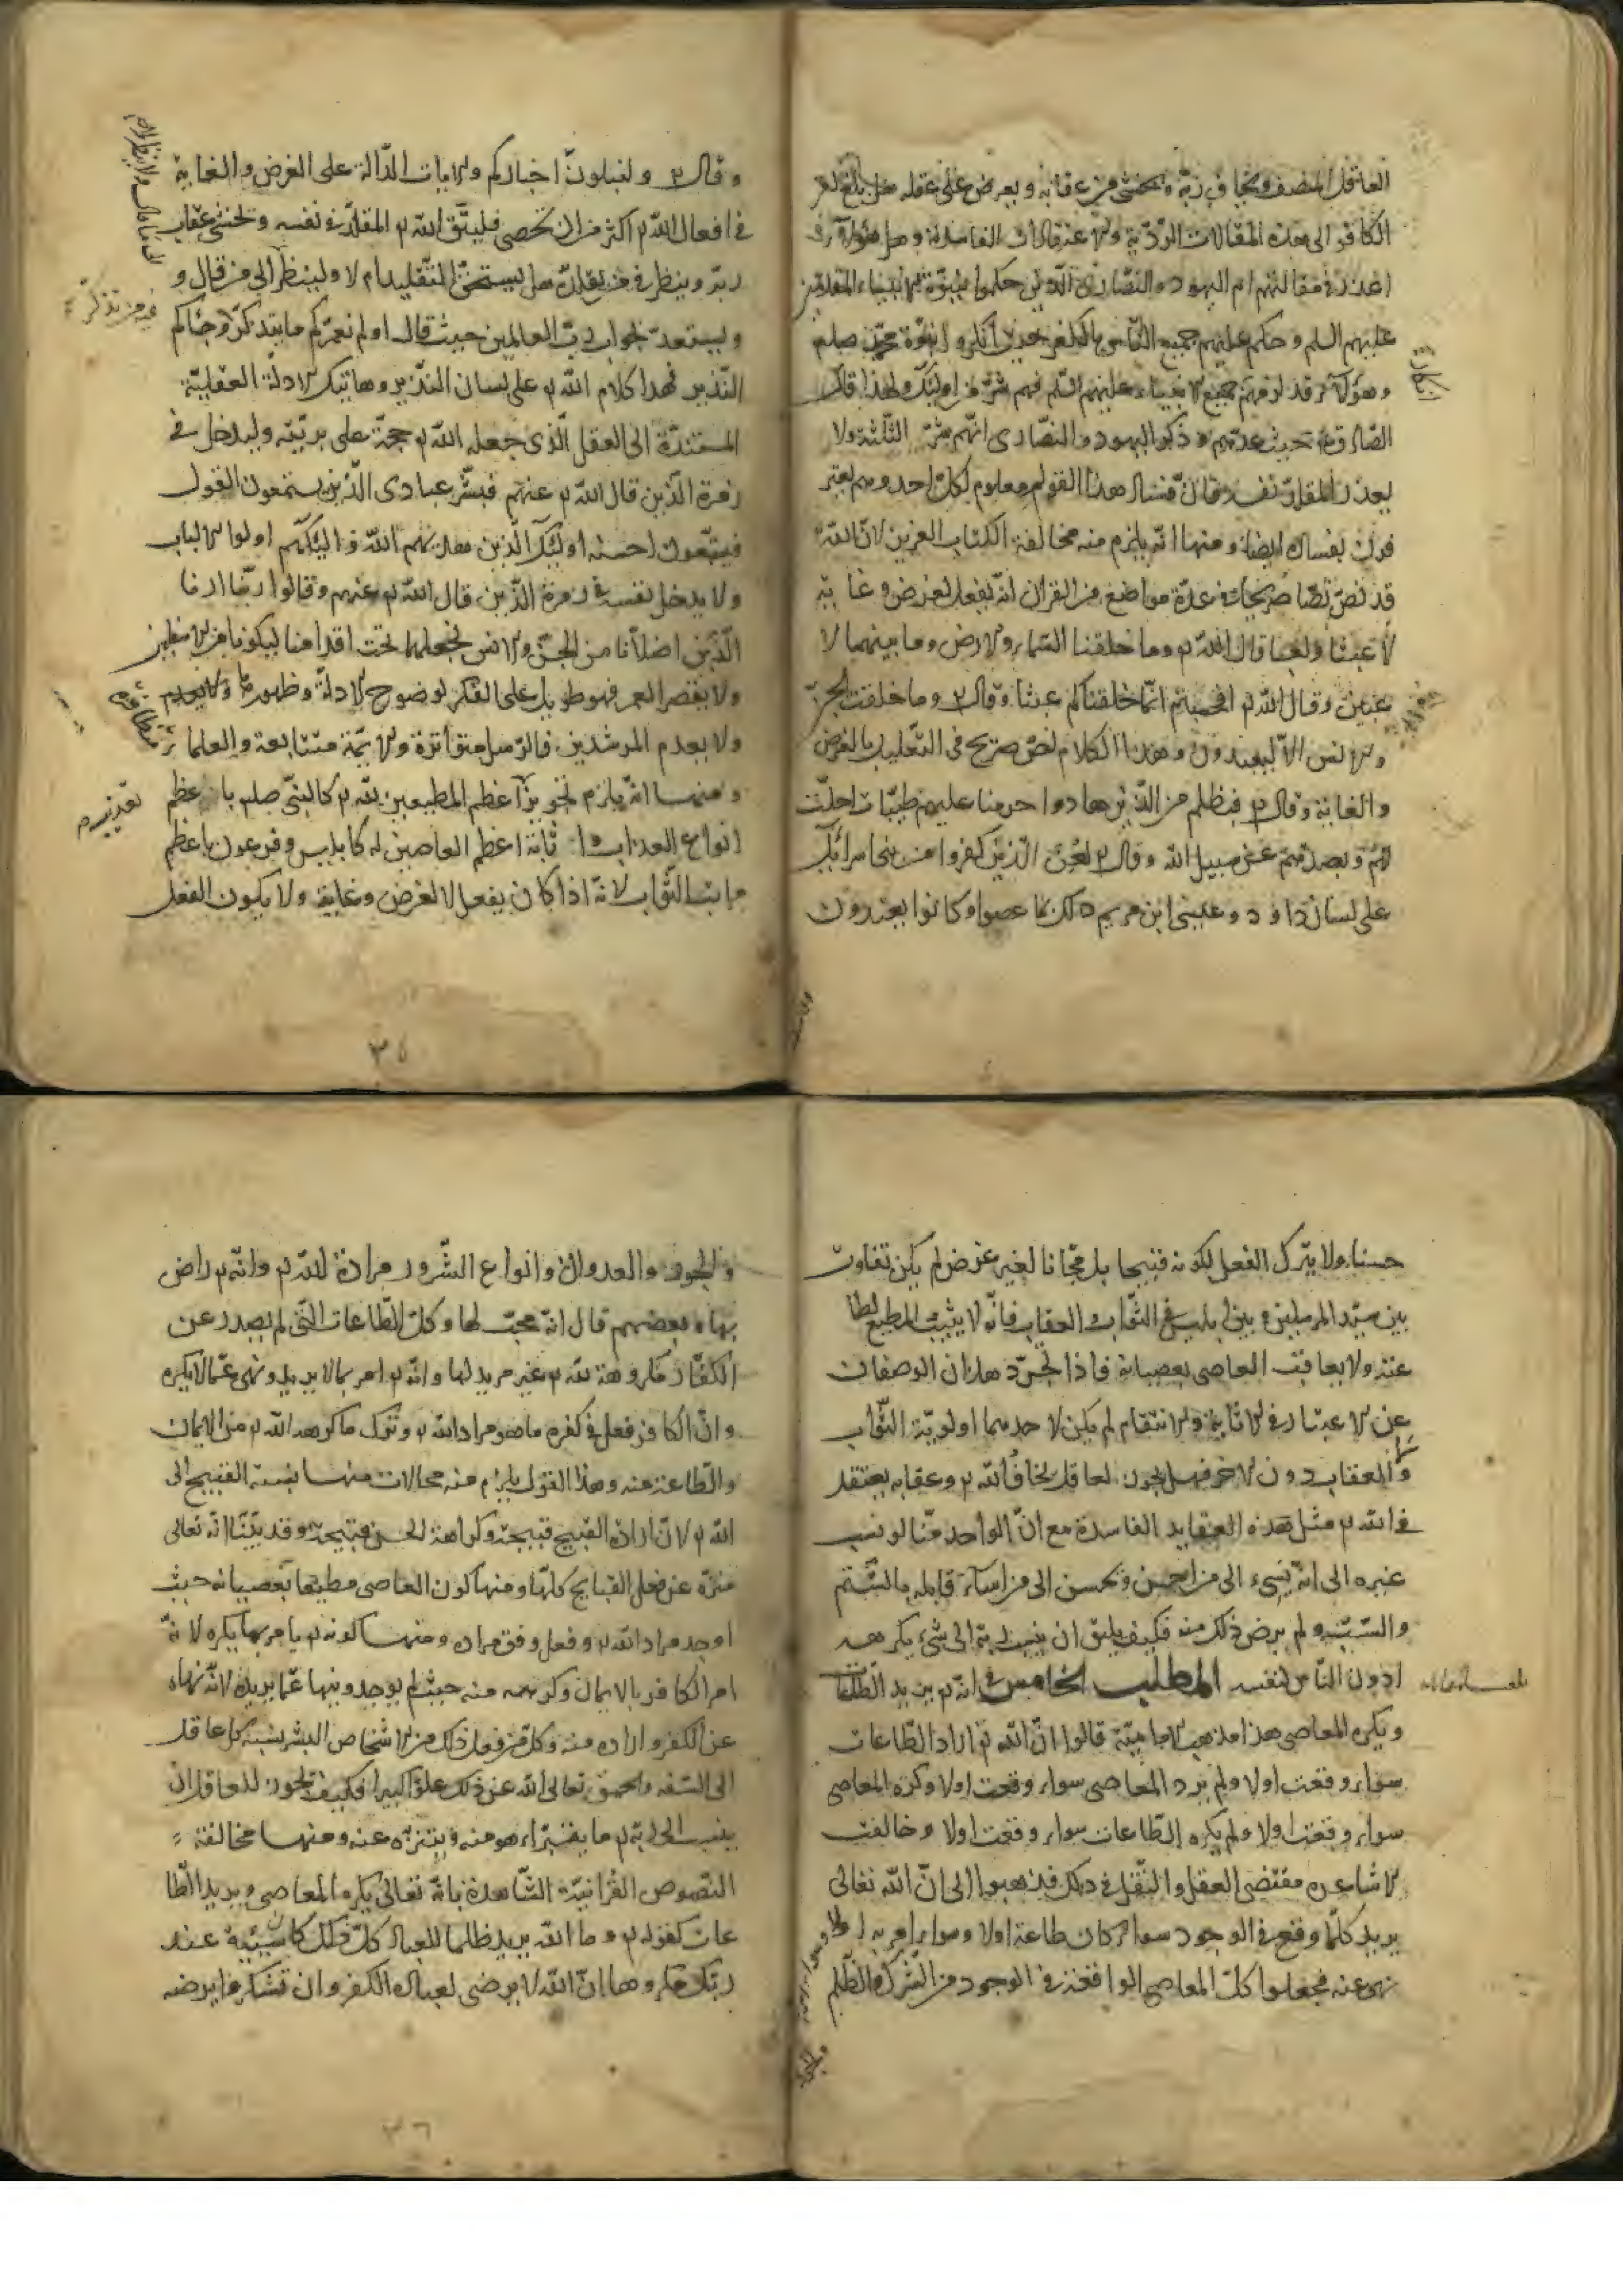 العاقل المنصف ويخاف ربه ويخشى من عقابه ويعرض على عقله هل بلغ كفر
الكافر الى هذه المقالات الردية والاعتقادات الفاسدة وهل هؤلاء
اعذر في مقالتهم ام اليهود والنصارى الذين حكموا بنبوة الانبياء المتقدمين
عليهم السلم وحكم عليهم جميع الناس بالكفر حيث انكروا نبوة محمد صلعم
وهؤلاء قد لزمهم جميع الانبياء عليهم السلم فهم شر من اولئك ولهذا قال
الصادق ع حيث عدهم وذكر اليهود والنصارى انهم شر الثلثة ولا
يعذر المقلد نفسه فان فساد هذا القول معلوم لكل احد وهم يعتر
فون بفساده ايضا ومنها انه يلزم منه مخالفة الكتاب العزيز لان الله
قد نص نصا صريحا في عدة مواضع من القران انه يفعل لغرض وغاية
لا عبثا ولعبا قال الله تع وما خلقنا السماء والارض وما بينهما لا
عبين وقال الله تع افحسبتم انما خلقناكم عبثا وقال تع وما خلقت الجن
والانس الا ليعبدون وهذا الكلام نص صريح في التعليل بالغرض
والغاية وقال تع فبظلم من الذين هادوا حرمنا عليهم طيبات احلت
لهم وبصدهم عن سبيل الله وقال تع لعن الذين كفروا من بنى اسرائيل
على لسان داود وعيسى ابن مريم ذلك بما عصوا وكانوا يعتدون
وقال تع ولنبلون اخباركم والايات الدالة على الغرض والغاية
في افعال الله تع اكثر من ان تحصى فليتق الله تع المقلد في نفسه ويخشى عقاب
ربه وينظر في من يقلده هل يستحق التقليد ام لا ولينظر الى من قال و
وليستعد لجواب رب العالمين حيث قال اولم نعمركم ما يتذكر وجاءكم
فيه من تذكر
النذير فهذا كلام الله تع على لسان النذير وهاتيك الادلة العقلية
المستندة الى العقل الذى جعله الله تع حجة على بريته وليدخل في
زمرة الذين قال الله تع عنهم فبشر عبادى الذين يستمعون القول
فيتبعون احسنه اولئك الذين هديهم الله واولئك هم اولوا الالباب
ولا يدخل نفسه في زمرة الذين قال الله تع عنهم وقالوا ربنا ارنا
الذين اضلانا من الجن والانس نجعلهما تحت اقدامنا ليكونا من الاسفلين
ولا يقصر العمر فهو طويل على الفكر لوضوح الادلة وظهورها
ولا يعدم المرشدين فالرسل متواترة والايمة متتابعة والعلما
ومنها انه يلزم تجويز اعظم المطيعين لله تع كالنبى صلعم باعظم
تعذيب
انواع العذاب واثابة اعظم العاصين له كابليس وفرعون باعظم
مراتب الثواب لانه اذا كان يفعل لا لغرض وغاية ولا يكون الفعل
٣٥
حسنا ولا يترك الفعل لكونه قبيحا بل مجانا لغير غرض لم يكن تفاوت
بين سيد المرسلين وبين ابليس في الثواب والعقاب فانه لا يثيب المطيع لطا
عته ولا يعاقب العاصى بعصيانه فاذا تجرد هذان الوصفان
عن الاعتبار في الاثابة والانتقام لم يكن لاحدهما اولوية الثواب
والعقاب دون الاخر فهل يجوز لعاقل يخاف الله تع وعقابه يعتقد
في الله تع مثل هذه العقايد الفاسدة مع ان الواحد منا لو نسب
غيره الى انه يسىء الى من احسن ويحسن الى من اساء قابله بالشتم
والسب ولم يرض ذلك منه فكيف يليق ان ينسب ربه الى شىء يكرهه
ادون الناس لنفسه المطلب الخامس في انه تع يريد الطاعات
ويكره المعاصى هذا مذهب الامامية قالوا ان الله تع اراد الطاعات
سواء وقعت اولا ولم يرد المعاصى سواء وقعت اولا وكره المعاصى
سواء وقعت اولا ولم يكره الطاعات سواء وقعت اولا وخالفت
الاشاعره مقتضى العقل والنقل في ذلك فذهبوا الى ان الله تعالى
يريد كلما وقع في الوجود سواء كان طاعة اولا وسواء امر به اولا
نهى عنه فجعلوا كل المعاصى الواقعة في الوجود من الشرك والظلم
والجور
والجور والعدوان وانواع الشرور مرادة لله تع وانه تع راض
بها وبعضهم قال انه محب لها وكل الطاعات التى لم يصدر عن
الكفار مكروهة لله تع غير مريد لها وانه تع امر بما لا يريد ونهى عما لا يكره
وان الكافر فعل في كفره ما هو مراد الله تع وترك ما كرهه الله تع من الايمان
والطاعة منه وهذا القول يلزم منه محالات منها نسبة القبيح الى
الله تع لان ارادة القبيح قبيحة وكراهة الحسن قبيحة وقد بينا انه تعالى
منزه عن فعل القبايح كلها ومنها كون العاصى مطيعا بعصيانه حيث
اوجد مراد الله تع وفعل وفق مراده ومنها كونه تع يامر بما يكره لانه
امر الكافر بالايمان وكرهه منه حيث لم يوجد وينها عما يريده لانه نهاه
عن الكفر واراده منه وكل من فعل ذلك من الاشخاص البشر ينسبه كل عاقل
الى السفه والحمق تعالى الله عن ذلك علوا كبيرا فكيف يجوز للعاقل ان
ينسب الى ربه تع ما يتبراء هو منه ويتنزه عنه ومنها مخالفة
النصوص القرانية الشاهدة بانه تعالى يكره المعاصى ويريد الطا
عات كقوله تع وما الله يريد ظلما للعباد كل ذلك كان سيئة عند
ربك مكروها ان الله لا يرضى لعباده الكفر وان تشكروا يرضه
٣٦